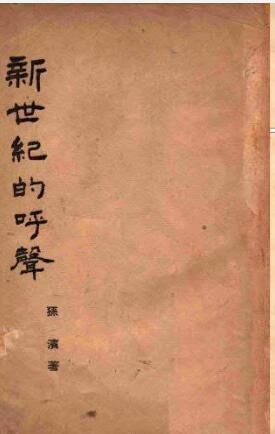 新世紀的呼聲
孫濱著